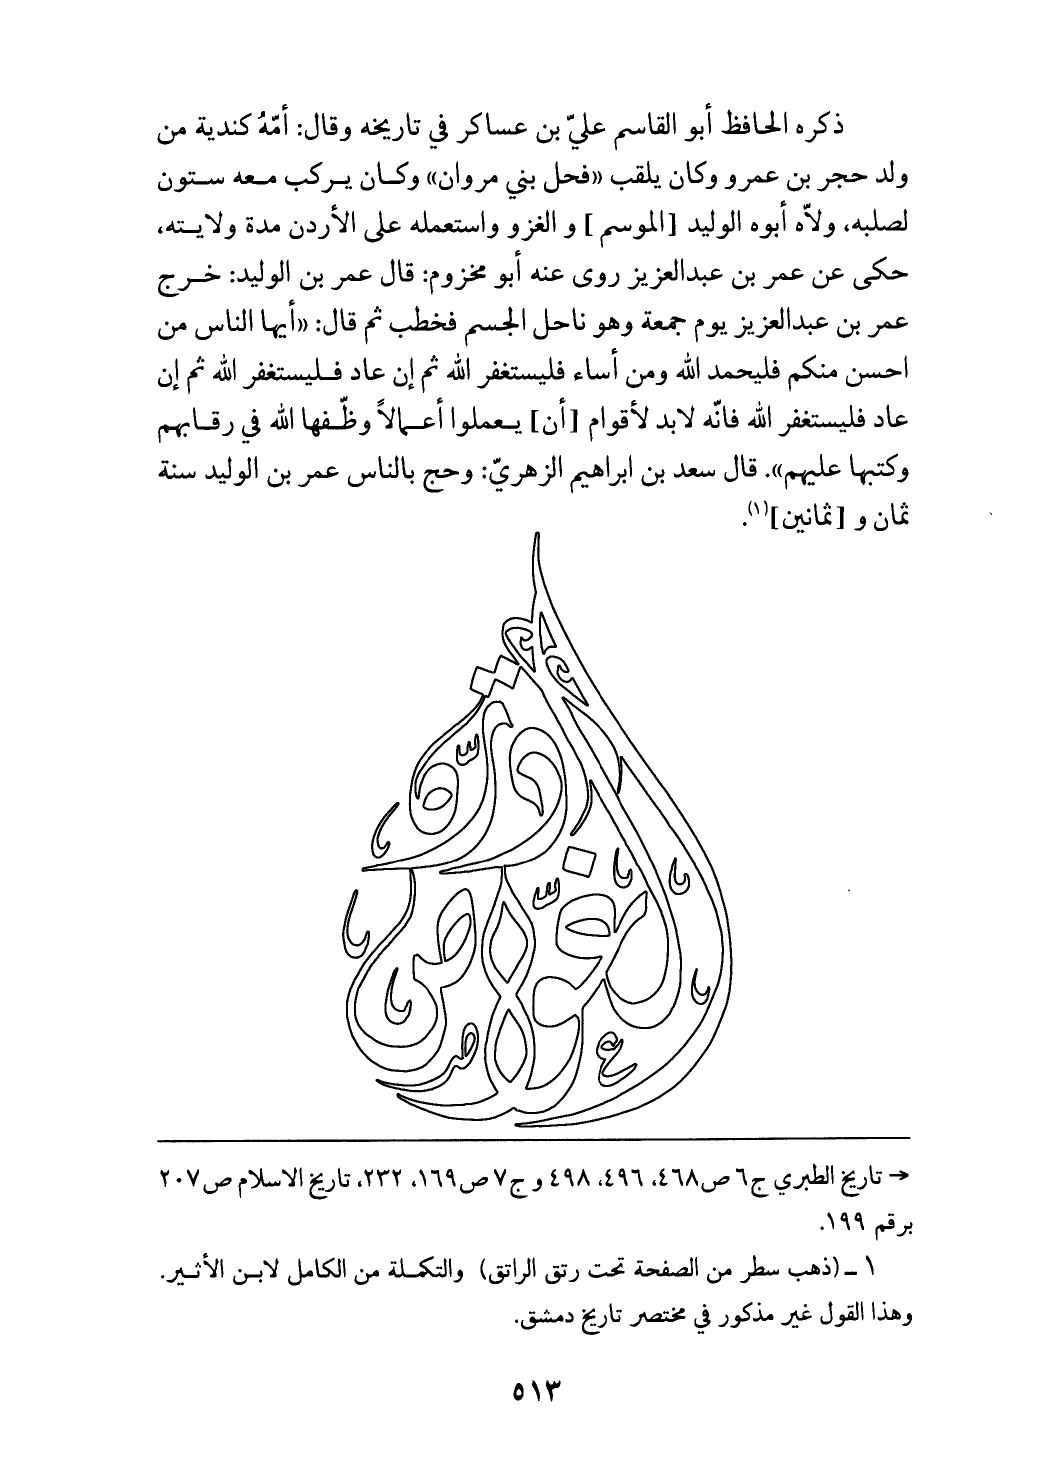 ذكره الحافظ أبو القاسم عليّ بن عساكر في تاريخه وقال: أمّهُ كندية من
ولد حجر بن عمرو وكان يلقب «فحل بني مروان» وكان يركب معه ستون
لصلبه، ولاّه أبوه الوليد [الموسم] و الغزو واستعمله على الأردن مدة ولايته،
حكى عن عمر بن عبدالعزيز روى عنه أبو مخزوم: قال عمر بن الوليد: خرج
عمر بن عبدالعزيز يوم جمعة وهو ناحل الجسم فخطب ثم قال: «أيها الناس من
احسن منكم فليحمد الله ومن أساء فليستغفر الله ثم إن عاد فليستغفر الله ثم إن
عاد فليستغفر الله فانّه لابد لأقوام [أن] يعملوا أعمالاً وظّفها الله في رقابهم
وكتبها عليهم». قال سعد بن ابراهيم الزهريّ: وحج بالناس عمر بن الوليد سنة
ثمان و [ثمانين](١).
درة
الغوّاص
→ تاريخ الطبري ج٦ ص٤٦٨، ٤٩٦، ٤٩٨ و ج٧ ص١٦٩، ٢٣٢، تاريخ الاسلام ص٢٠٧
برقم ١٩٩.
١ ـ (ذهب سطر من الصفحة تحت رتق الراتق) والتكملة من الكامل لابن الأثير.
وهذا القول غير مذكور في مختصر تاريخ دمشق.
٥١٣